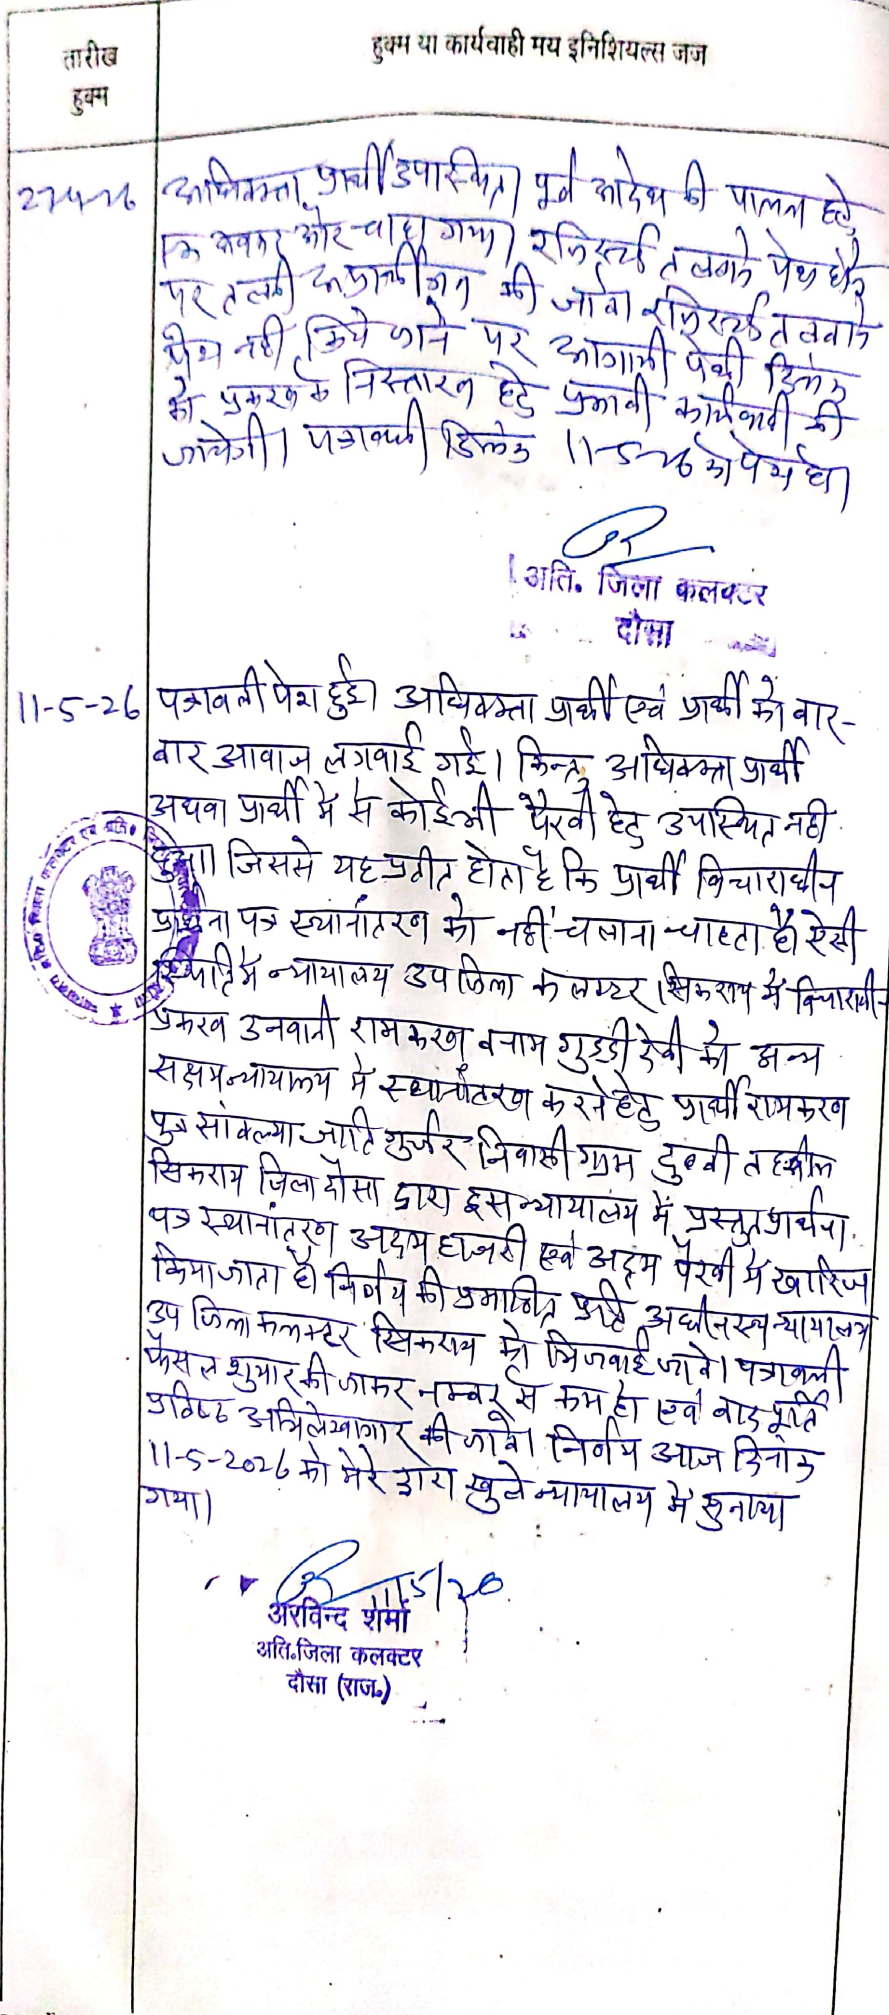 तारीख
हुक्म
हुक्म या कार्यवाही मय इनिशियल्स जज
अधिवक्ता प्रार्थी उपस्थित। पूर्व आदेश की पालना हेतु
अवसर और चाहा गया। रजिस्टर्ड तलवाने पेश होने
पर तलबी अप्रार्थीगण की जावे। रजिस्टर्ड तलवाने
पेश नहीं किये जाने पर आगामी पेशी दिनांक
को प्रकरण के निस्तारण हेतु प्रभावी कार्यवाही की
जायेगी। पत्रावली दिनांक 11-5-26 को पेश हो।
अति. जिला कलक्टर
दौसा
11-5-26
पत्रावली पेश हुई। अधिवक्ता प्रार्थी एवं प्रार्थी को बार-
बार आवाज लगवाई गई। किन्तु अधिवक्ता प्रार्थी
अथवा प्रार्थी में से कोई भी पैरवी हेतु उपस्थित नहीं
हुआ। जिससे यह प्रतीत होता है कि प्रार्थी विचाराधीन
प्रार्थना पत्र स्थानांतरण को नहीं चलाना चाहता है। ऐसी
स्थिति में न्यायालय उप जिला कलक्टर सिकराय में विचाराधीन
प्रकरण उनवानी रामकरण बनाम गुड्डी देवी को अन्य
सक्षम न्यायालय में स्थानांतरण करने हेतु प्रार्थी रामकरण
पुत्र सांवल्या जाति गुर्जर निवासी ग्राम तहसील
सिकराय जिला दौसा द्वारा इस न्यायालय में प्रस्तुत प्रार्थना
पत्र स्थानांतरण अदम हाजरी एवं अदम पैरवी में खारिज
किया जाता है। निर्णय की प्रमाणित प्रति अधीनस्थ न्यायालय
उप जिला कलक्टर सिकराय को भिजवाई जावे। पत्रावली
फैसल शुमार की जाकर नम्बर से कम हो एवं बाद पूर्ति
प्रविष्ठ अभिलेखागार की जावे। निर्णय आज दिनांक
11-5-2026 को मेरे द्वारा खुले न्यायालय में सुनाया
गया।
अरविन्द शर्मा
अति.जिला कलक्टर
दौसा (राज.)